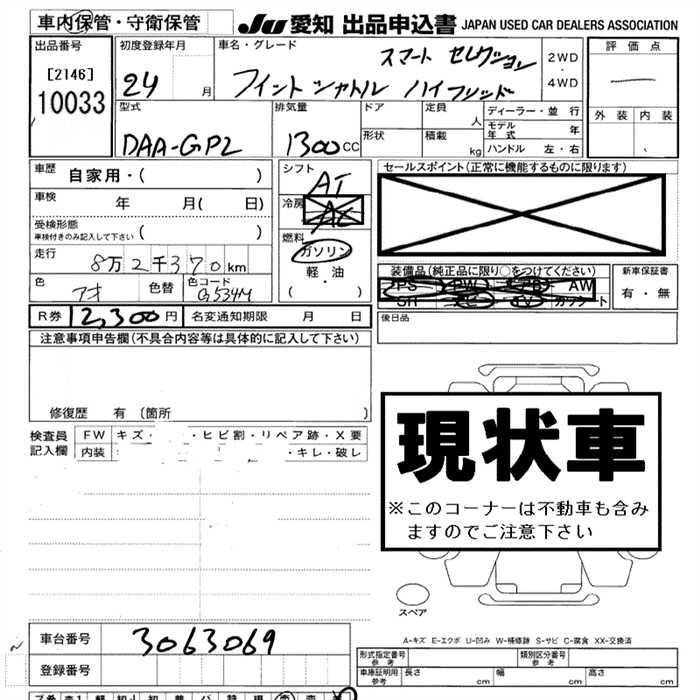 車内保管・守衛保管
JU 愛知 出品申込書 JAPAN USED CAR DEALERS ASSOCIATION
出品番号 初度登録年月 車名・グレード 評価点
[2146]
10033
24 月
スマート セレクション
フィットシャトル ハイブリッド
2WD
・
4WD
外装 内装
型式 排気量 ドア 定員 人 ディーラー・並行
DAA-GP2 1300cc
形状 積載 kg
モデル年式 年
ハンドル 左・右
車歴 自家用・( )
シフト AT
セールスポイント(正常に機能するものに限ります)
車検 年 月( 日)
冷房 AC
受検形態
車検付きのみ記入して下さい ( )
燃料 ガソリン
軽・油
( ・ )
走行 8万2千370km
装備品(純正品に限り○をつけてください) 新車保証書
PS PW AW
SR TV
有・無
色 アオ 色替 色コード G534M
R券 12,300円 名変通知期限 月 日
後日品
注意事項申告欄(不具合内容等は具体的に記入して下さい)
修復歴 有 〔箇所 〕
検査員記入欄 FW キズ・ ・ヒビ割・リペア跡・X要
内装 ・キレ・破レ
現状車
※このコーナーは不動車も含み
ますのでご注意下さい
スペア
A-キズ E-エクボ U-凹み W-補修跡 S-サビ C-腐食 XX-交換済
車台番号 3063069
登録番号
形式指定番号 参考 類別区分番号 参考
車庫証明用 参考 長さ cm 幅 cm 高さ cm